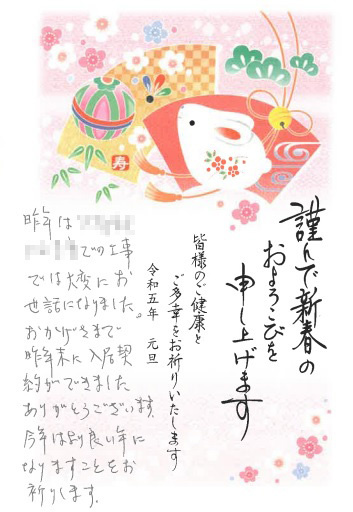 謹んで新春の
およろこびを
申し上げます
皆様のご健康と
ご多幸をお祈りいたします
令和五年 元旦
寿
昨年は
での工事
では大変にお
世話になりました。
おかげさまで
昨年末に入居契
約ができました
ありがとうございます。
今年はより良い年に
なりますことをお
祈りします。